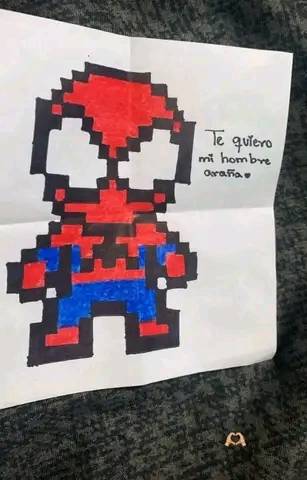 Te quiero
mi hombre
araña♥